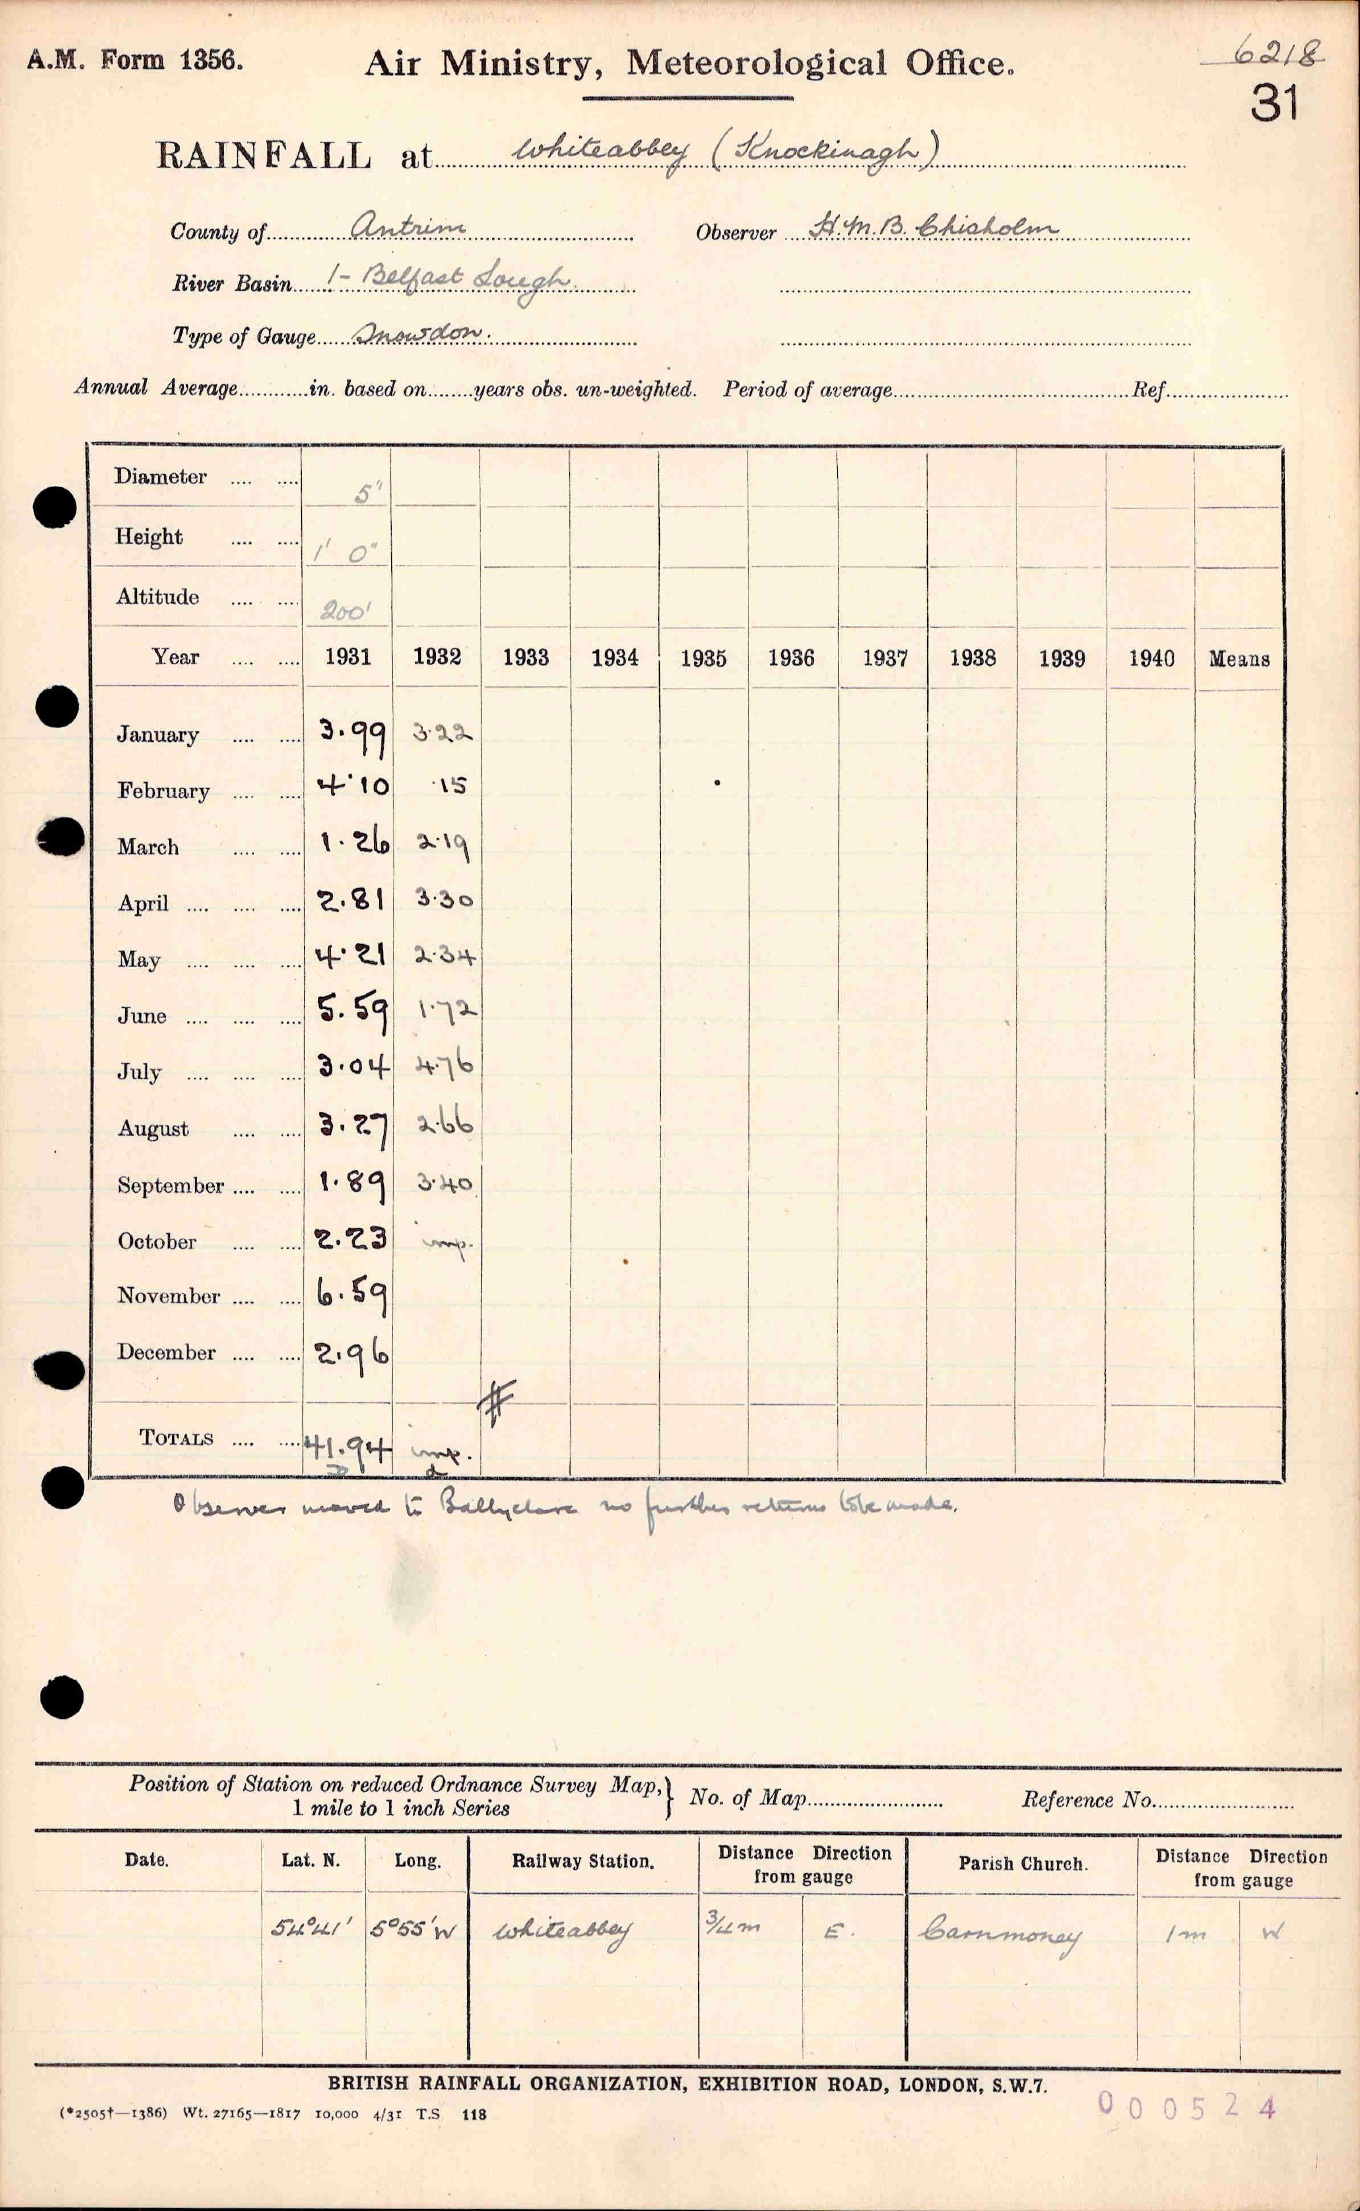 A.M. Form 1356.
Air Ministry, Meteorological Office.
6218
31
RAINFALL at Whiteabbey (Knockinagh)
County of Antrim Observer H.M.B. Chisholm
River Basin 1- Belfast Lough.
Type of Gauge Snowdon.
Annual Average............in. based on........years obs. un-weighted. Period of average............Ref............
Diameter .... .... 5"
Height .... .... 1' 0"
Altitude .... .... 200'
Year .... .... 1931 1932 1933 1934 1935 1936 1937 1938 1939 1940 Means
January .... .... 3.99 3.22
February .... .... 4.10 .15
March .... .... 1.26 2.19
April .... .... .... 2.81 3.30
May .... .... .... 4.21 2.34
June .... .... .... 5.59 1.72
July .... .... .... 3.04 4.76
August .... .... 3.27 2.66
September .... .... 1.89 3.40
October .... .... 2.23 imp.
November .... .... 6.59
December .... .... 2.96
TOTALS .... .... 41.94 imp.
Observer moved to Ballyclare no further returns to be made.
Position of Station on reduced Ordnance Survey Map, } No. of Map............ Reference No............
1 mile to 1 inch Series
Date. Lat. N. Long. Railway Station. Distance Direction from gauge Parish Church. Distance Direction from gauge
54°41' 5°55'W Whiteabbey 3/4m E. Carnmoney 1m W
BRITISH RAINFALL ORGANIZATION, EXHIBITION ROAD, LONDON, S.W.7.
(*2505†—1386) Wt. 27165—1817 10,000 4/31 T.S 118
000524